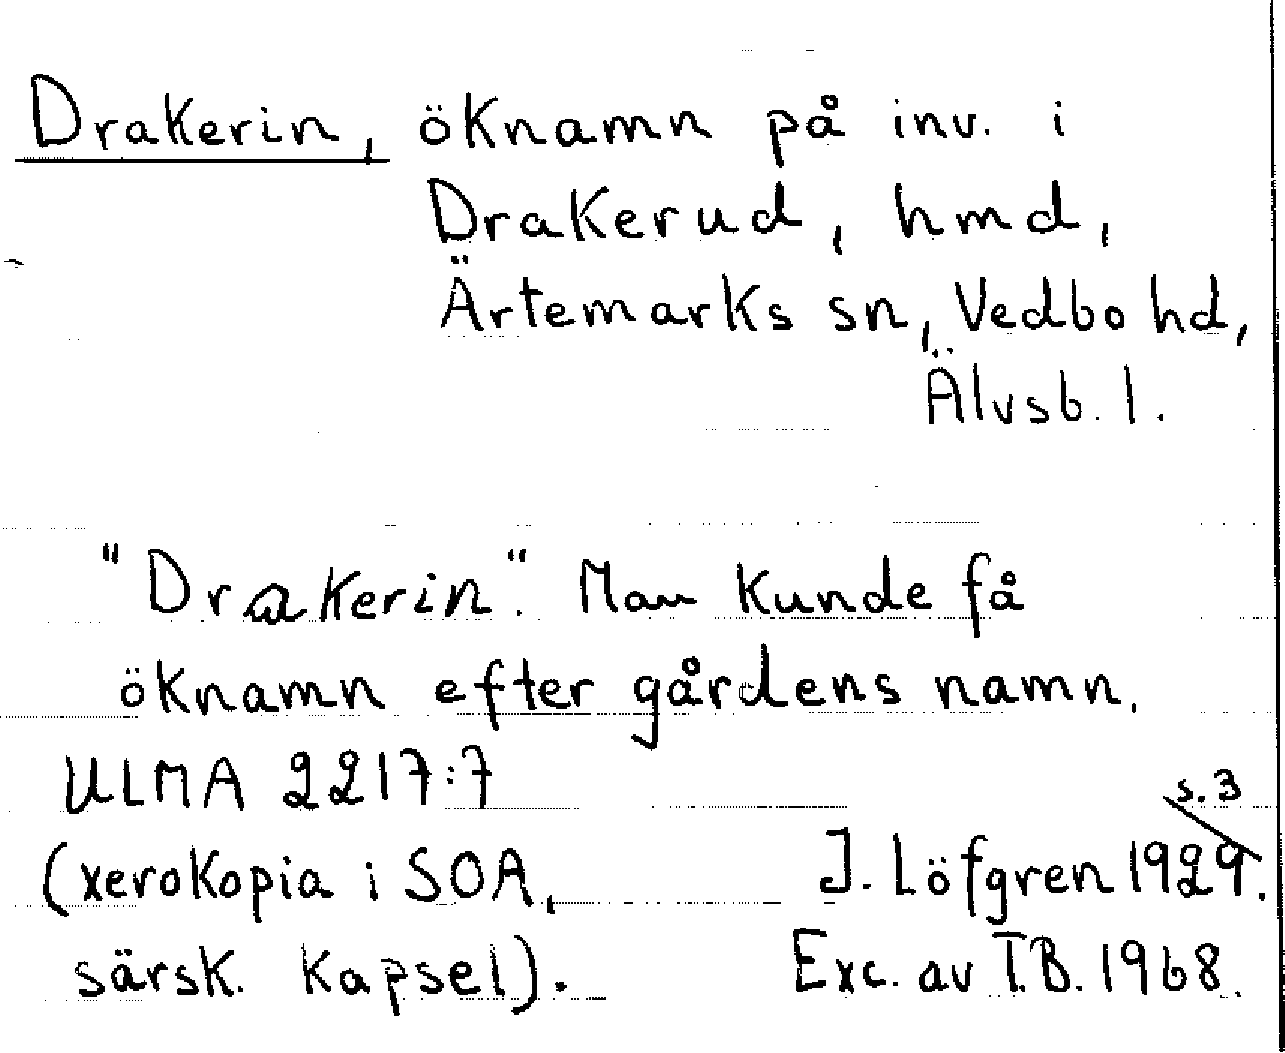 Drakerin, öknamn på inv. i
Drakerud, hmd,
Ärtemarks sn, Vedbo hd,
Älvsb. l.
"Drakerin". Man kunde få
öknamn efter gårdens namn.
ULMA 2217:7
s. 3
(xerokopia i SOA, J. Löfgren 1929.
särsk. kapsel). Exc. av T.B. 1968.